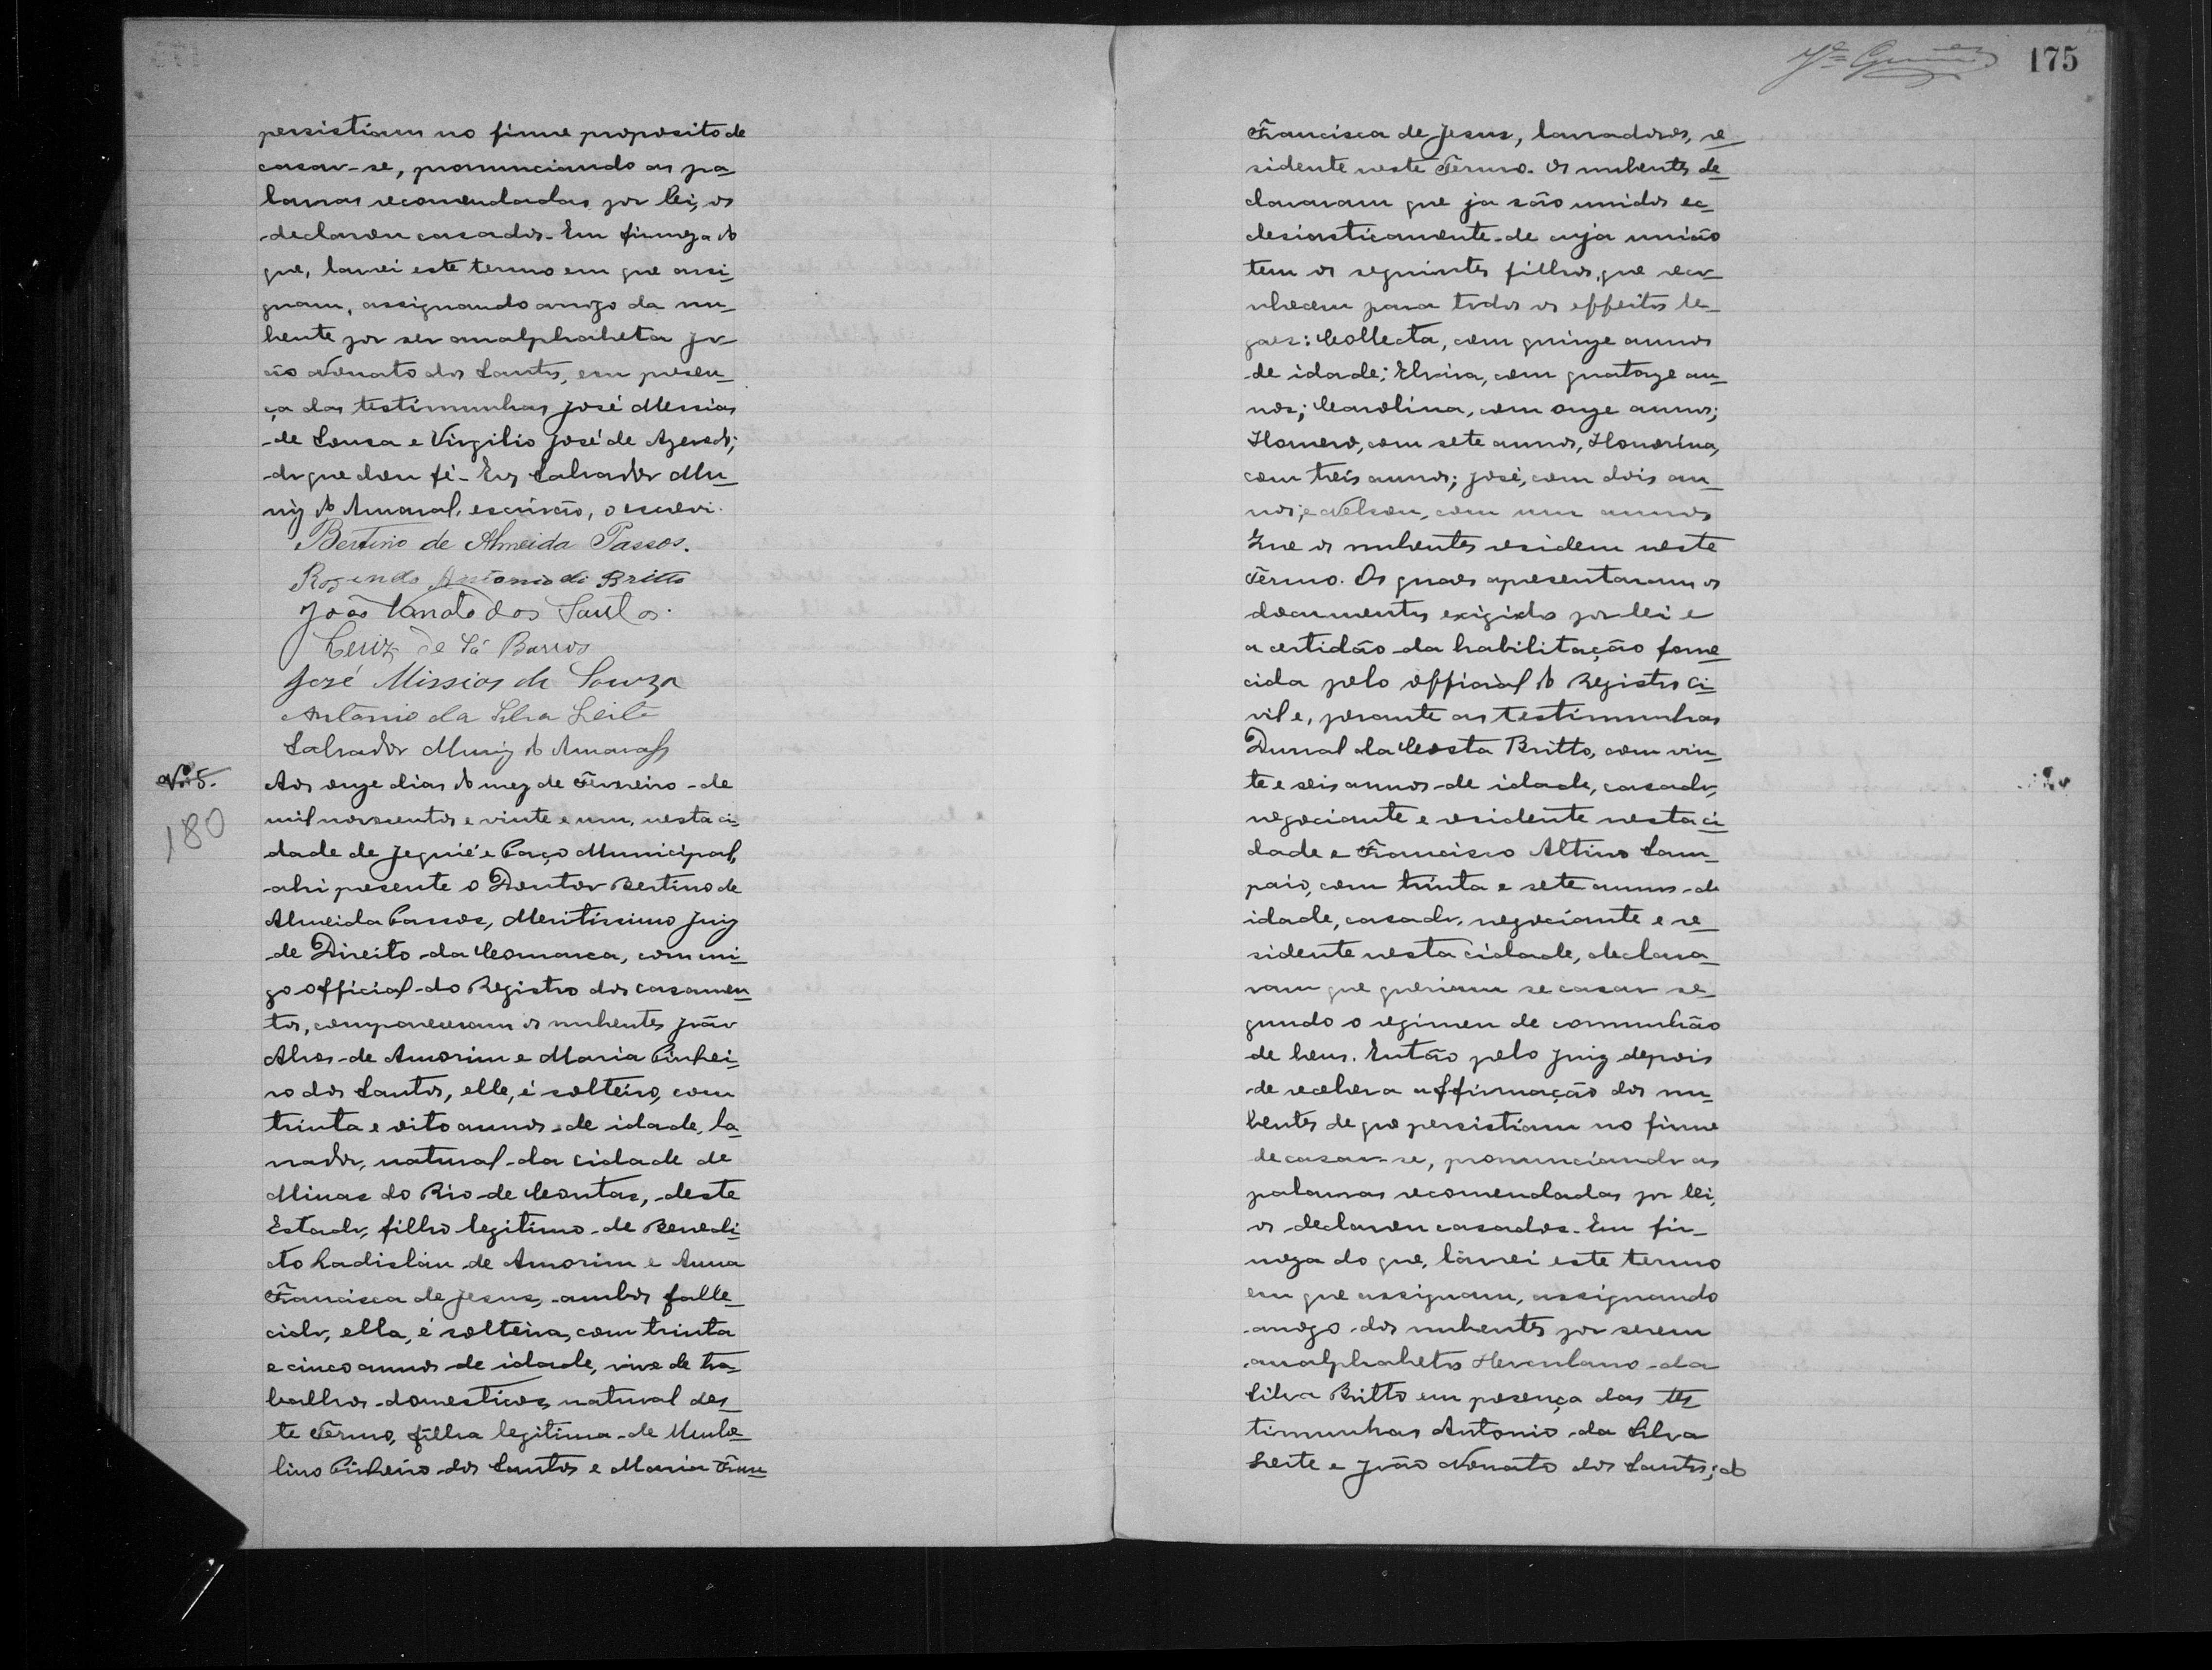 persistiam no firme proposito de
casar-se, pronunciando as pa
lavras recomendadas por lei, os
declarou casados. Em firmeza do
que, lavrei este termo em que assi
gnam, assignando arogo da nu-
bente por ser analphabeta Jo-
ão Nonato dos Santos, em presen
ça das testimunhas José Messias
de Sousa e Virgilio José de Azevedo;
do que dou fé. Eu, Salvador Mu
niz do Amaral, escrivão, o escrevi.
Bertino de Almeida Passos.
Rosendo Antonio de Britto
João Nonato dos Santos.
Luiz de Sá Barros
José Missias de Souza
Antonio da Silva Leite
Salvador Muniz do Amaral
No 5.
180
Aos onze dias do mez de Fevereiro de
mil novecentos e vinte e um, nesta ci
dade de Jequié e Paço Municipal,
ahi presente o Doutor Bertino de
Almeida Passos, Meritissimo Juiz
de Direito da Comarca, commi
go official do Registro dos casamen
tos, compareceram os nubentes João
Alves de Amorim e Maria Pinhei
ro dos Santos, elle, é solteiro, com
trinta e oito annos de idade, la
vrador, natural da cidade de
Minas do Rio de Contas, deste
Estado, filho legitimo de Benedi
cto Ladislau de Amorim e Anna
Francisca de Jesus, ambos falle
cido, ella, é solteira, com trinta
e cinco annos de idade, vive de tra
balhos domesticos, natural des
te Termo, filha legitima de Umbe
lino Pinheiro dos Santos e Maria Fran
175
Francisca de Jesus, lavradores, re
sidente neste Termo. Os nubentes de
clararam que ja são unidos ec
clesiasticamente de cuja união
tem os seguintes filhos, que reco
nhecem para todos os effeitos le-
gaes: Collecta, com quinze annos
de idade; Elvira, com quatorze an
nos; Carolina, com onze annos;
Homero, com sete annos, Honorina,
com treis annos; José, com dois an
nos; e Nelson, com um annos
Que os nubentes residem neste
Termo. Os quaes apresentaram os
documentos exigidos por lei e
a certidão da habilitação forne
cida pelo official do Registro Ci
vil e, perante as testimunhas
Durval da Costa Britto, com vin
te e seis annos de idade, casado,
negociante e residente nesta ci
dade e Francisco Altino Sam
paio, com trinta e sete annos de
idade, casado, negociante e re
sidente nesta cidade, declara
ram que queriam se casar se
gundo o regimen de communhão
de bens. Então pelo Juiz depois
de receber a affirmação dos nu
bentes de que persistiam no firme
de casar-se, pronunciando as
palavras recomendadas por lei,
os declarou casados. Em fir-
meza do que, lavrei este termo
em que assignam, assignando
arogo dos nubentes por serem
analphabetos Herculano da
Silva Britto em presença das tes
timunhas Antonio da Silva
Leite e João Nonato dos Santos; do